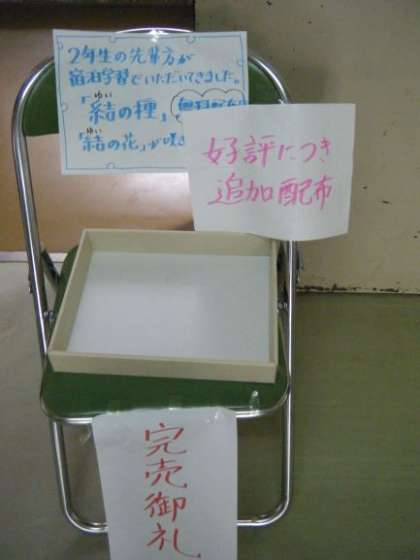 2年生の先輩方が
宿泊学習でいただいてきました。
ゆい
「結の種」 無料配布
ゆい
「結の花」が咲き
好評につき
追加配布
完売御礼